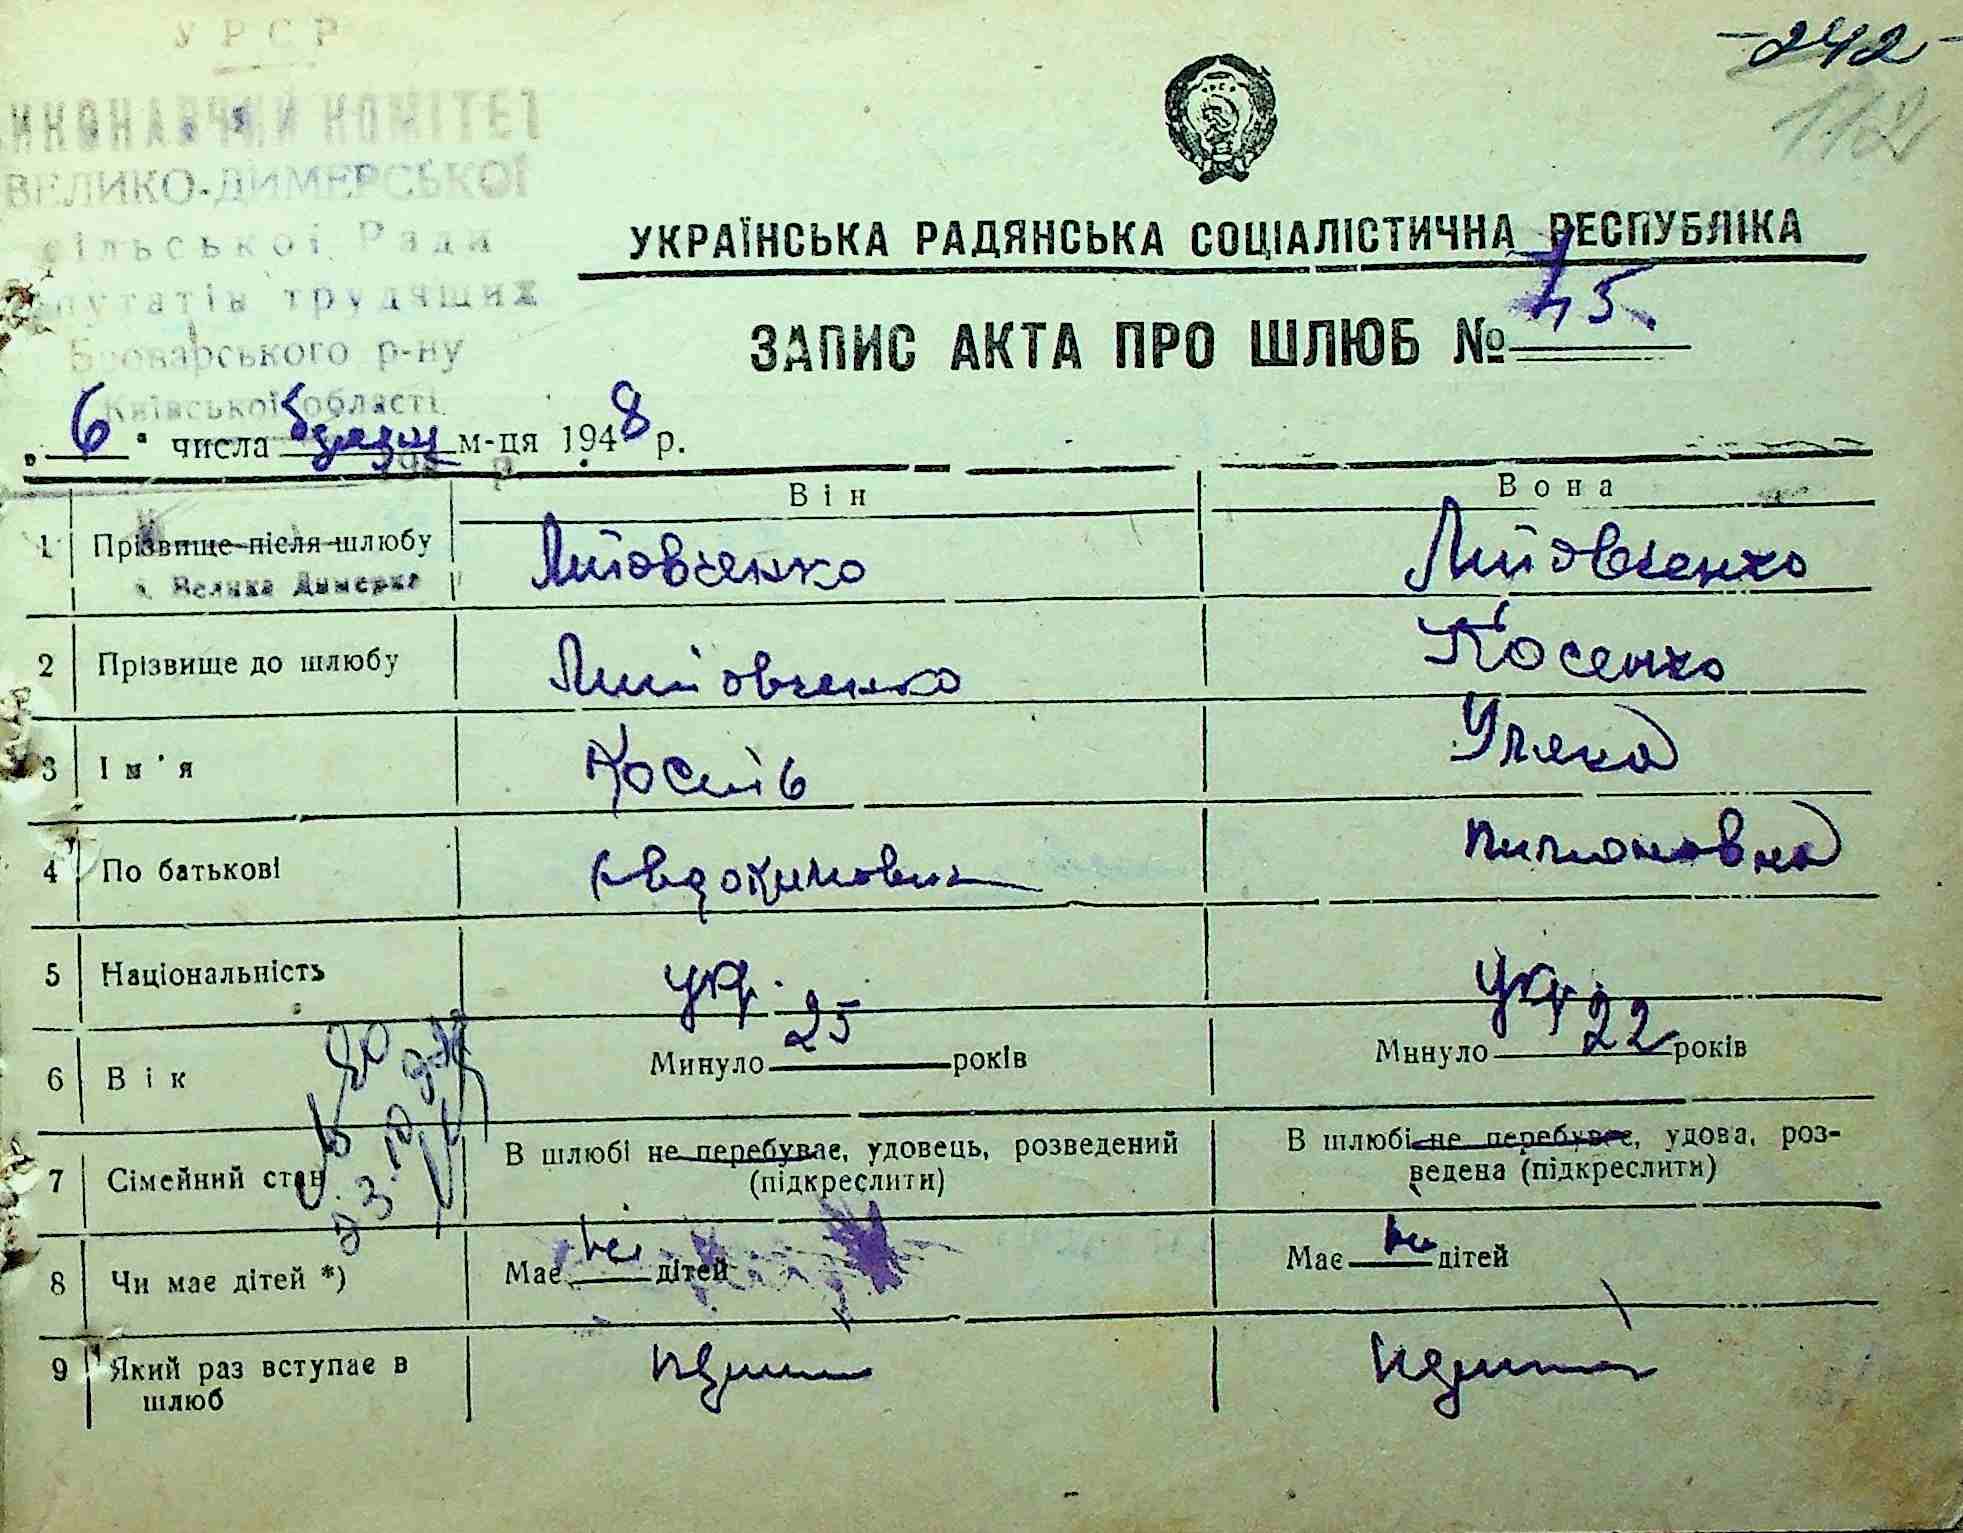 УРСР
ВИКОНАВЧИЙ КОМІТЕТ
ВЕЛИКО-ДИМЕРСЬКОЇ
сільської Ради
депутатів трудящих
Броварського р-ну
Київської області
-242-
112
УКРАЇНСЬКА РАДЯНСЬКА СОЦІАЛІСТИЧНА РЕСПУБЛІКА
ЗАПИС АКТА ПРО ШЛЮБ № 45
„6" числа м-ця 1948 р.
Він Вона
1 Прізвище після шлюбу
с. Велика Димерка
2 Прізвище до шлюбу Косенко
3 Ім'я Уляна
4 По батькові Евдокимович
5 Національність укр. укр.
6 Вік Минуло 25 років Минуло 22 років
7 Сімейний стан В шлюбі не перебуває, удовець, розведений (підкреслити) В шлюбі не перебуває, удова, роз-
ведена (підкреслити)
8 Чи має дітей *) Має не дітей Має не дітей
9 Який раз вступає в
шлюб